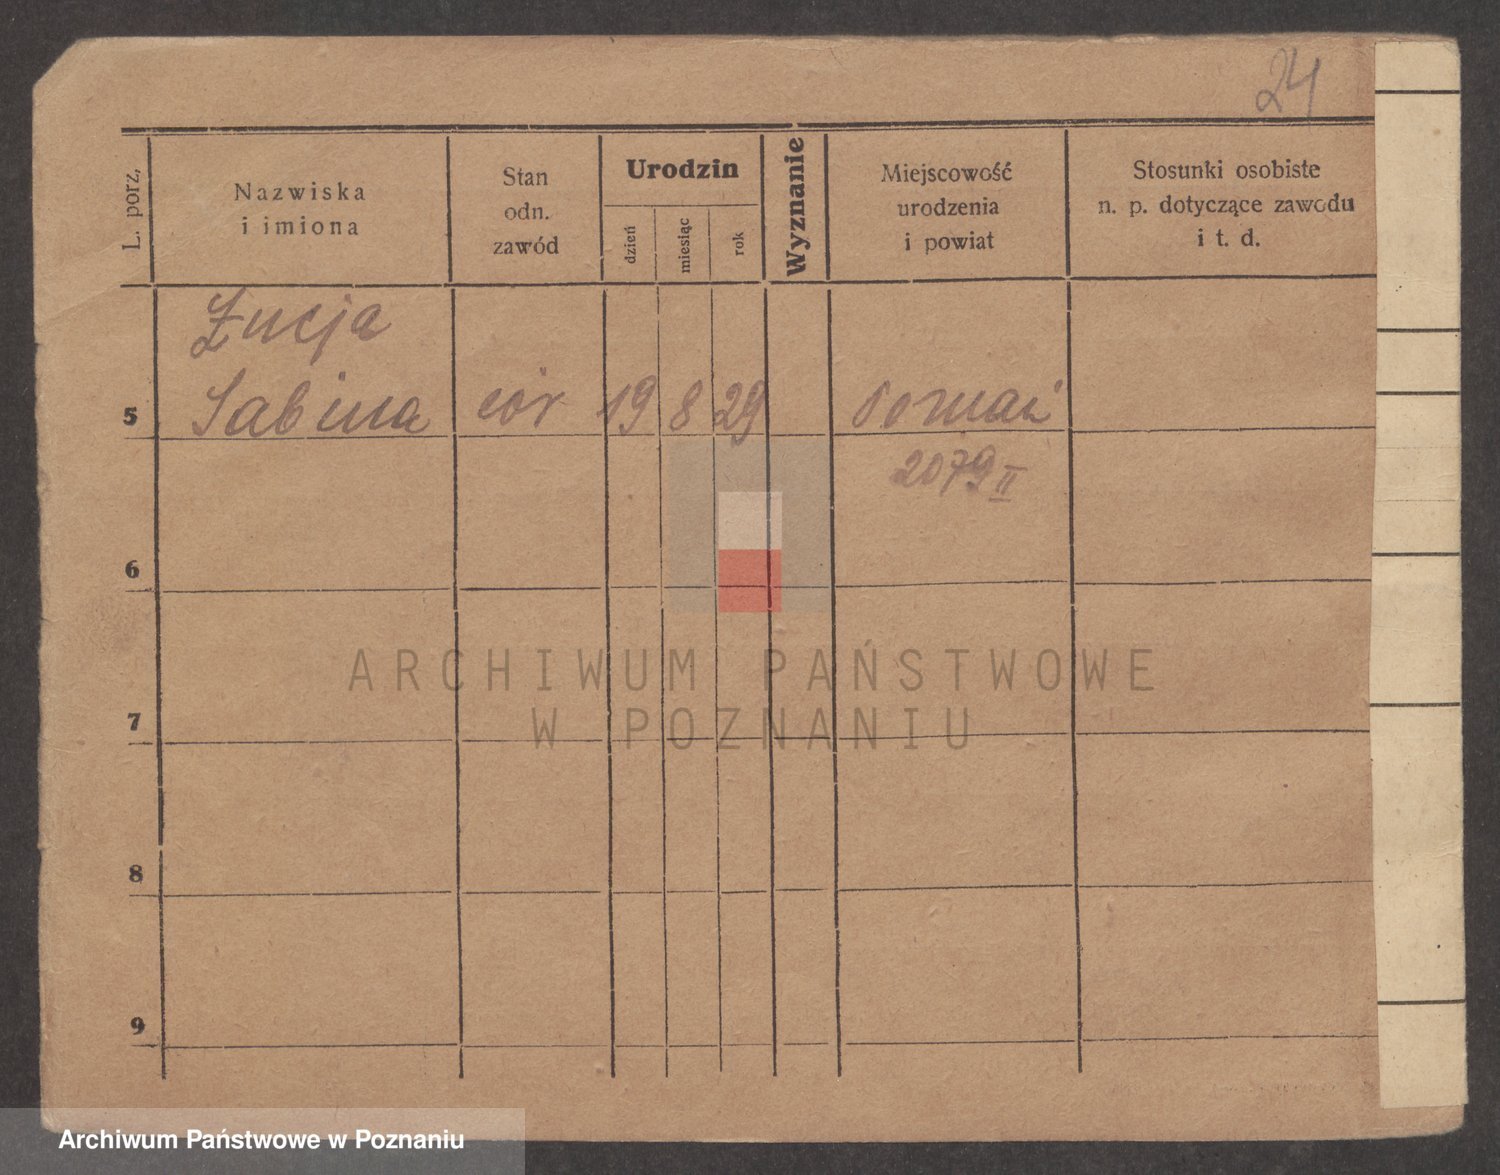 24
L. porz,
Nazwiska
i imiona
Stan
odn.
zawód
Urodzin
dzień
miesiąc
rok
Wyznanie
Miejscowość
urodzenia
i powiat
Stosunki osobiste
n. p. dotyczące zawodu
i t. d.
Łucja
5 Sabina cór 19 8 29 Poznań
2079 II
6
7
8
9
ARCHIWUM PAŃSTWOWE
W POZNANIU
Archiwum Państwowe w Poznaniu